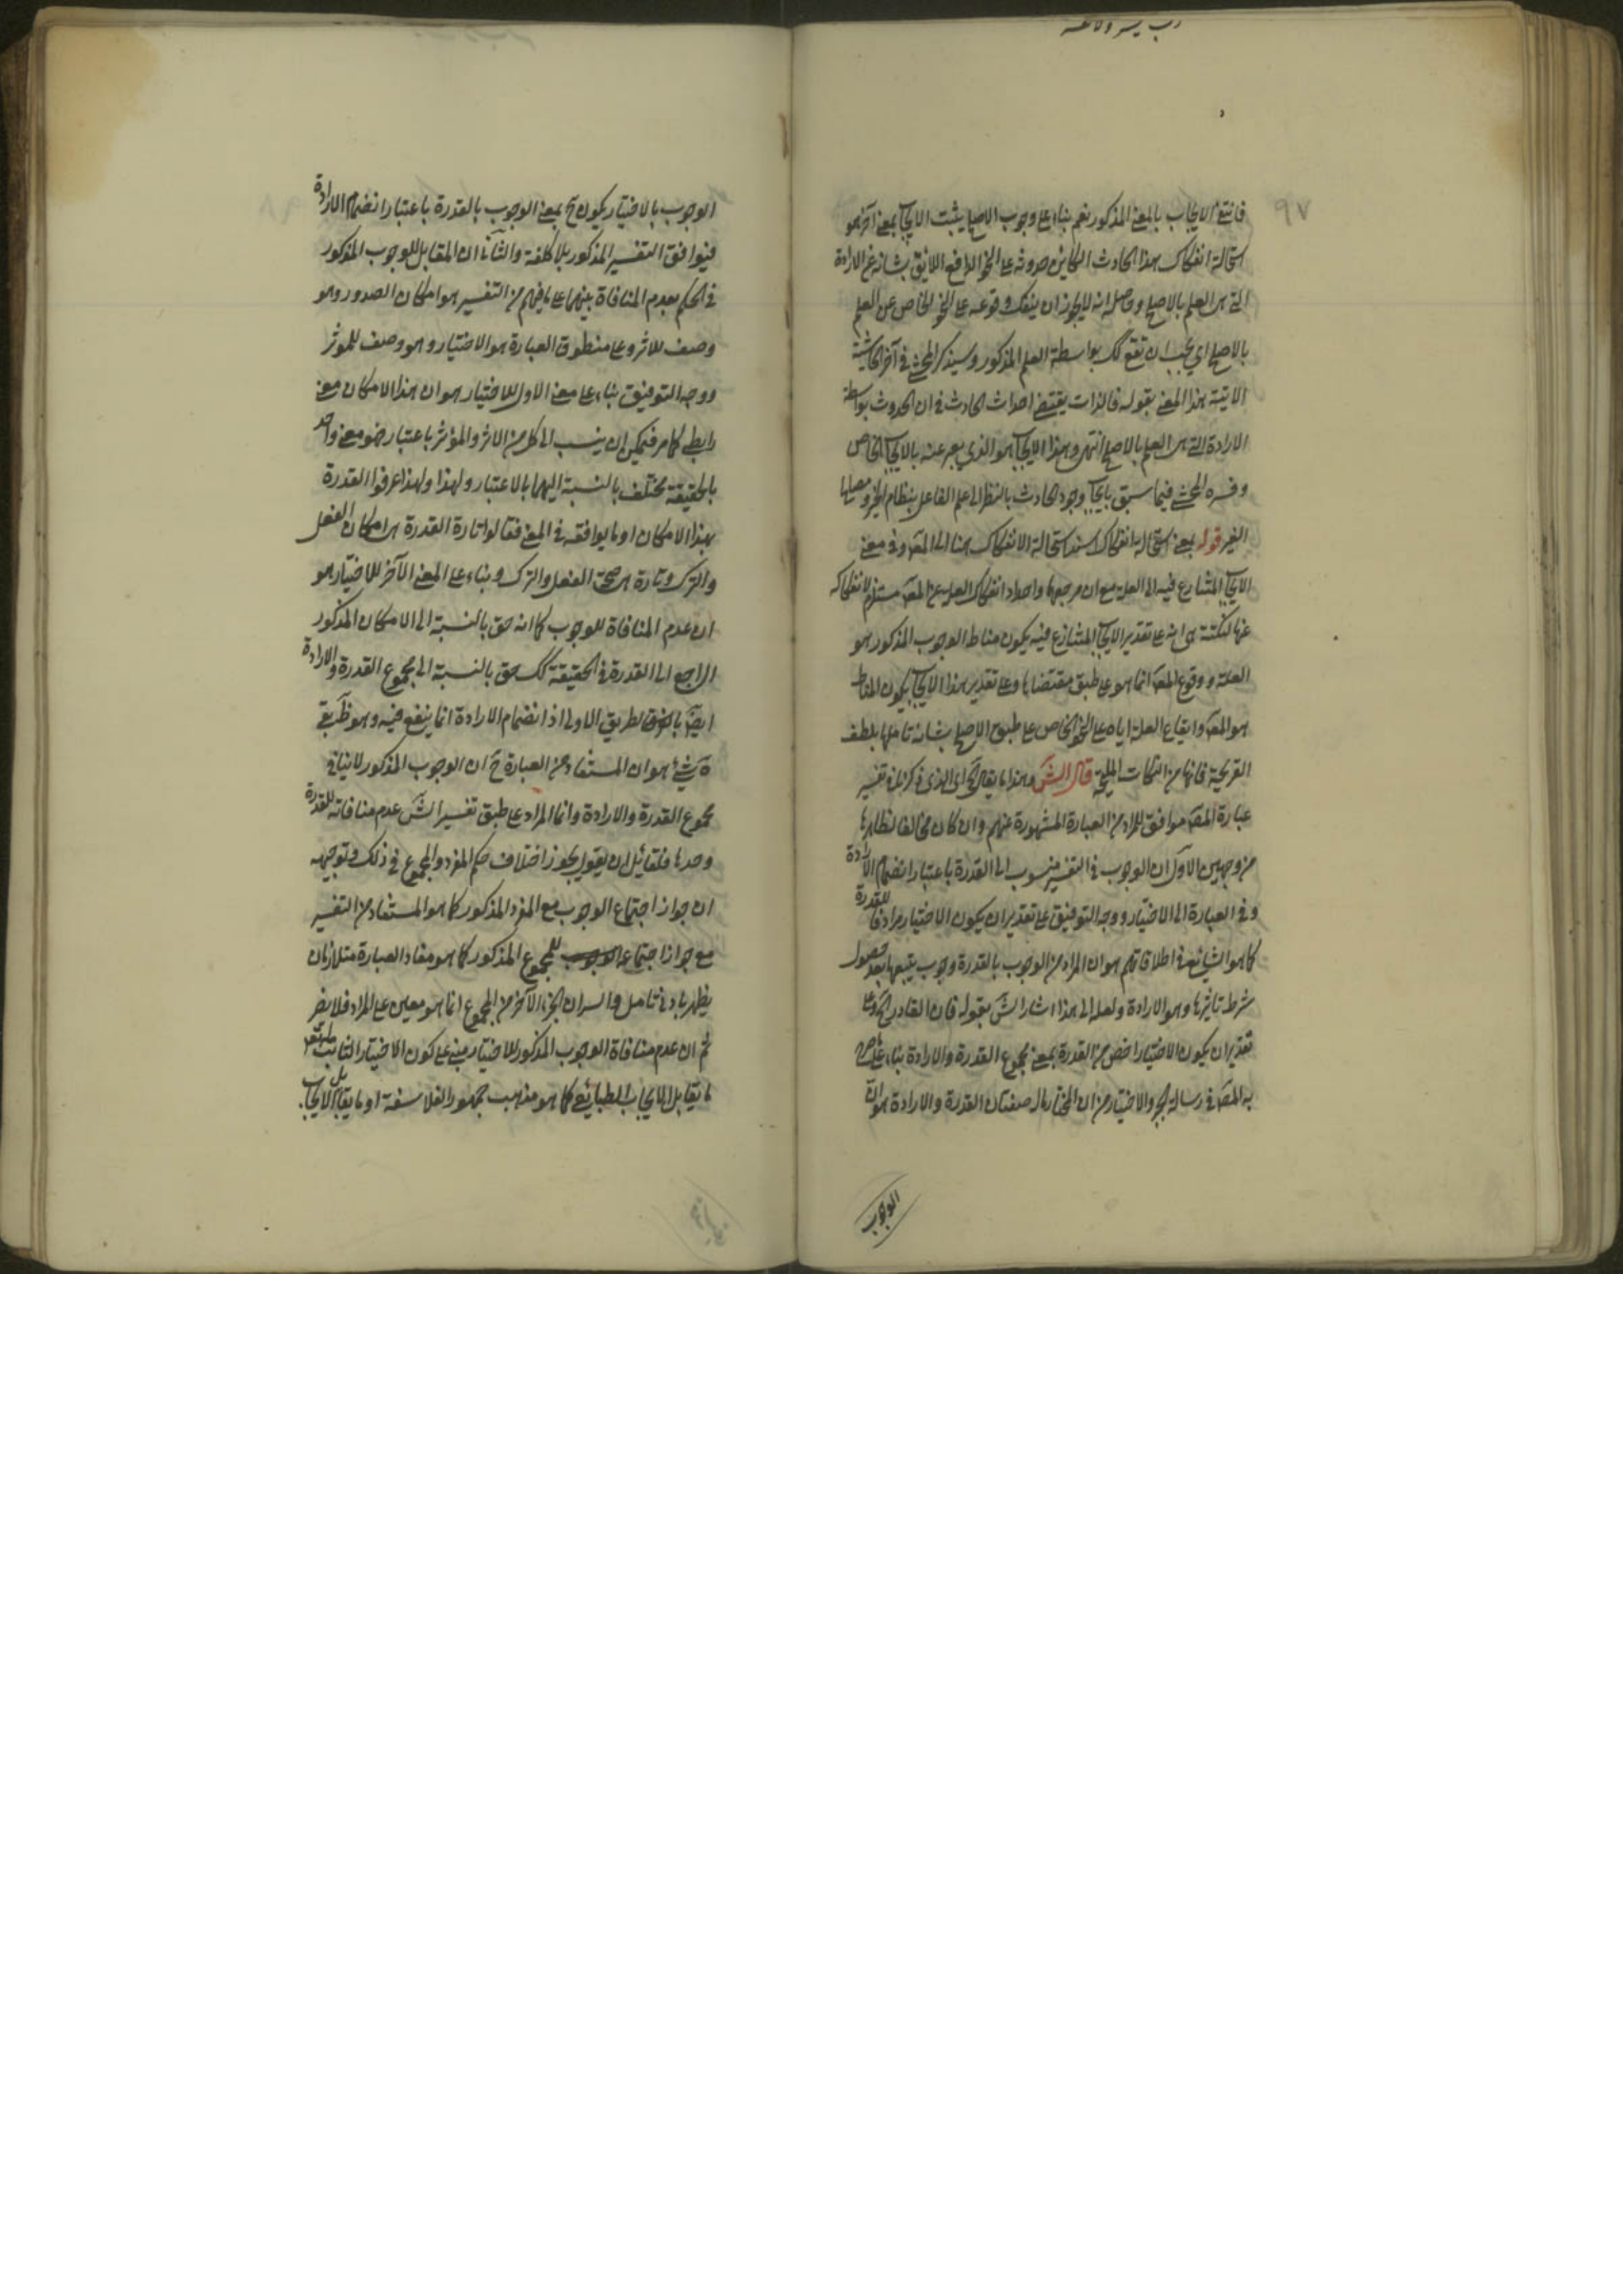 رب يسر ولا تعسر
٩٧
فانتفى الايجاب بالمعنى المذكور نعم بناء على وجوب الاصلح يثبت الايجا بمعنى آخر هو
استحالة انفكاك هذا الحادث الكاين حدوثه على النحو الواقع اللايق بشانه عن الارادة
التى هى العلم بالاصلح وحاصله انه لايجوز ان ينفك وقوعه على النحو الخاص عن العلم
بالاصلح اي يجب ان تقع كك بواسطة العلم المذكور وسيذكر المحشى فى آخر الحاشية
الاتية هذا المعنى بقوله فالذات يقتضى احداث الحادث فى ان الحدوث بواسطة
الارادة التى هى العلم بالاصلح انتهى وهذا الايجا هو الذي يعبر عنه بالايجا الخاص
وفسره المحشى فيما سبق بايجا وجود الحادث بالنظر الى علم الفاعل بنظام الخير
الغير قوله بمعنى استحالة انفكاك اسند استحالة الانفكاك هنا الى المعَ وفى معنى
الايجا المتنازع فيه الى العلة مع ان مرجعهما واحد اذ انفكاك العلة عن المعَ مستلزم لانفكاكه
عنها لنكتة هى انه على تقدير الايجا المتنازع فيه يكون مناط الوجوب المذكور هو
العلة ووقوع المعَ انما هو على طبق مقتضاها وعلى تقدير هذا الايجا يكون المناط
هو المعَ وايقاع العلة اياه على النحو الخاص على طبق الاصلح بشانه تاملها بلطف
القريحة فانها من النكات المليحة قال الشَ وهذا ما يقال اى الذى ذكرنا فى تفسير
عبارة المصَ موافق للمراد من العبارة المشهورة عنهم وان كان مخالفا لظاهرها
من وجهين الاول ان الوجوب فى التفسير منسوب الى القدرة باعتبار انضمام الارادة
وفى العبارة الى الاختيار ووجه التوفيق على تقدير ان يكون الاختيار مرادفا للقدرة
كما هو الشايع فى اطلاقاتهم هو ان المراد من الوجوب بالقدرة وجوب يتبعها بعد حصول
شرط تاثيرها وهو الارادة ولعله الى هذا اشار الشَ بقوله فان القادر الخ وعلى
تقدير ان يكون الاختيار اخص من القدرة بمعنى مجموع القدرة والارادة بناء على ما صرح
به المصَ فى رسالة الجبر والاختيار من ان المختار ماله صفتان القدرة والارادة هو ان
الوجوب
الوجوب بالاختيار يكون ح بمعنى الوجوب بالقدرة باعتبار انضمام الارادة
فيوافق التفسير المذكور بلا كلفة والثانى ان المقابل للوجوب المذكور
فى الحكم بعدم المنافاة بينهما على ما يفهم من التفسير هو امكان الصدور وهو
وصف للاثر وعلى منطوق العبارة هو الاختيار وهو وصف للموثر
ووجه التوفيق بناء على معنى الاول للاختيار هو ان هذا الامكان معنى
رابطى كما مر فيمكن ان ينسب الى كل من الاثر والمؤثر باعتبار فهو معنى واحد
بالحقيقة مختلف بالنسبة اليهما بالاعتبار ولهذا ولهذا عرفوا القدرة
بهذا الامكان او ما يوافقه فى المعنى فقالوا تارة القدرة هى امكان الفعل
والترك وتارة هى صحة الفعل والترك وبناء على المعنى الآخر للاختيار هو
ان عدم المنافاة للوجوب كما انه حق بالنسبة الى الامكان المذكور
الراجع الى القدرة فى الحقيقة كك حق بالنسبة الى مجموع القدرة والارادة
ايضَ بالطريق الاولى اذ انضمام الارادة انما ينفع فيه وهو ظَ بقى
شىء هو ان المستفاد من العبارة ح ان الوجوب المذكور لاينافى
مجموع القدرة والارادة وانما المراد على طبق تفسير الشَ عدم منافاته للقدرة
وحدها فلقائل ان يقول يجوز اختلاف حكم المفرد والمجموع فى ذلك وتوجيهه
ان جواز اجتماع الوجوب مع المفرد المذكور كما هو المستفاد من التفسير
مع جواز اجتماعه للمجموع المذكور كما هو مفاد العبارة متلازمان
يظهر بادنى تامل والسر ان الجزء الآخر من المجموع انما هو معين على المراد فلا يضر
ثم ان عدم منافاة الوجوب المذكور للاختيار مبنى على كون الاختيار الثابت
ما يقابل الايجاب الطبائعى كما هو مذهب جمهور الفلاسفة او ما يقابل الايجاب